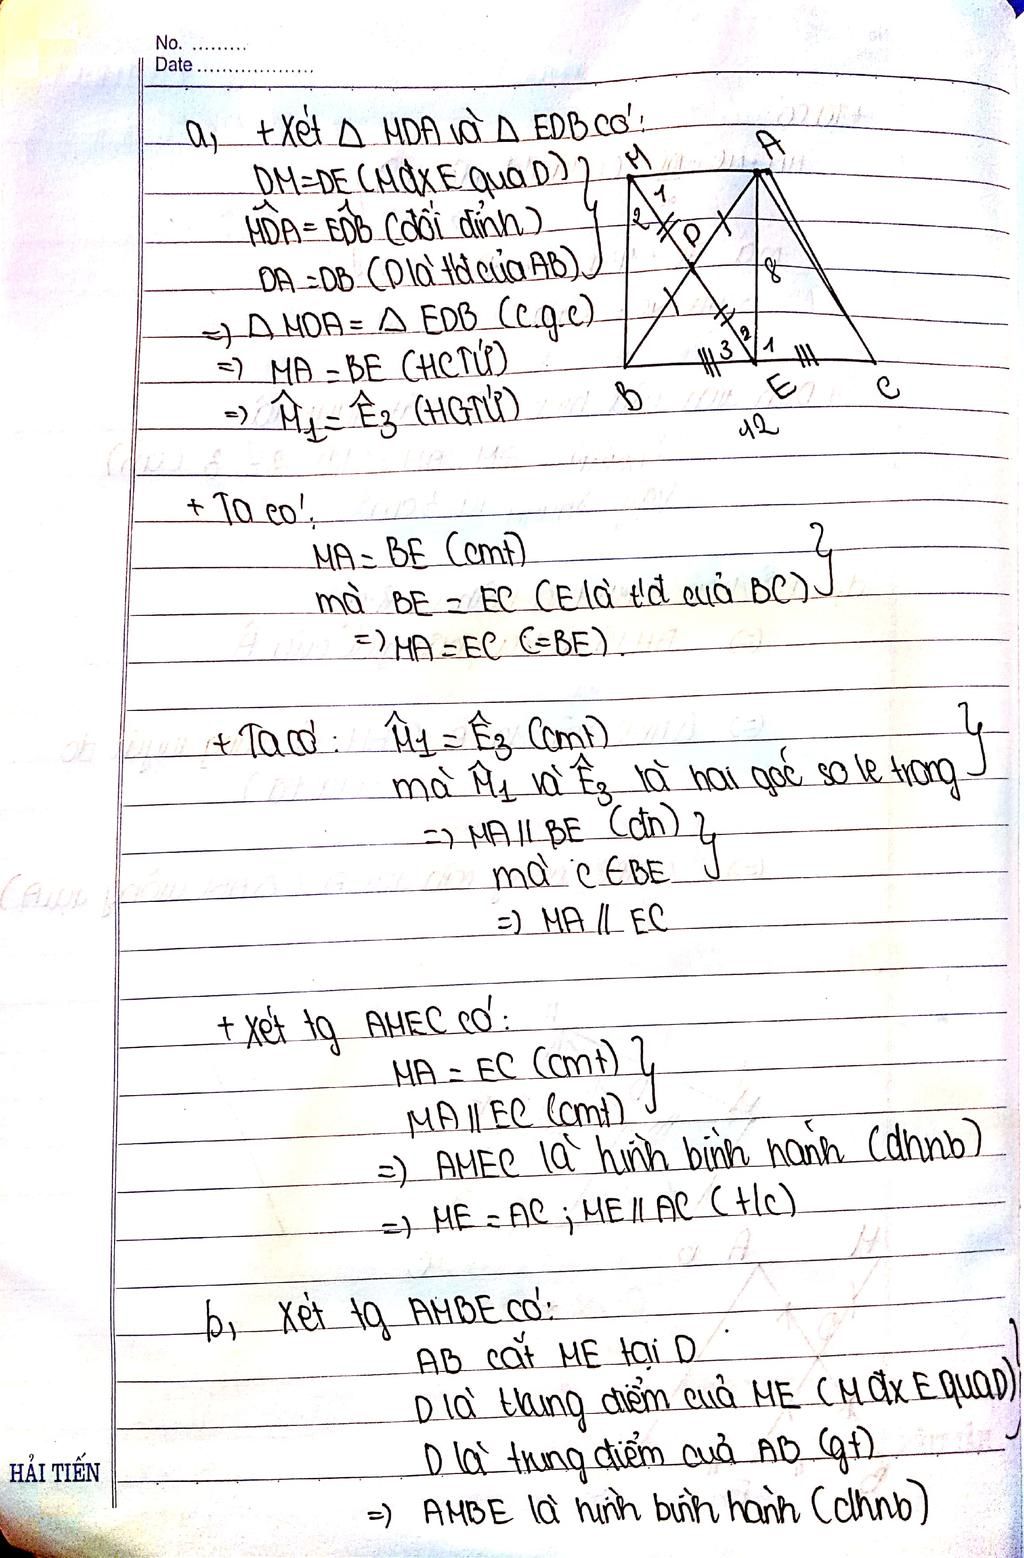 No. .........
Date ...................
a, + Xét △ MDA và △ EDB có:
DM = DE (M đx E qua D)
M̂DA = ÊDB (đối đỉnh)
DA = DB (D là tđ của AB)
=) △ MDA = △ EDB (c.g.c)
=) MA = BE (HCTỨ)
=) M̂1 = Ê3 (HGTỨ)
M A
1
2
D
8
3 2 1
B E C
12
+ Ta có:
MA = BE (cmt)
mà BE = EC (E là tđ của BC)
=) MA = EC (=BE).
+ Ta có: M̂1 = Ê3 (cmt)
mà M̂1 và Ê3 là hai góc so le trong
=) MA // BE (đn)
mà C ∈ BE
=) MA // EC
+ Xét tg AMEC có:
MA = EC (cmt)
MA // EC (cmt)
=) AMEC là hình bình hành (dhnb)
=) ME = AC ; ME // AC (t/c)
b, Xét tg AMBE có:
AB cắt ME tại D
D là trung điểm của ME (M đx E qua D)
D là trung điểm của AB (gt)
=) AMBE là hình bình hành (dhnb)
HẢI TIẾN